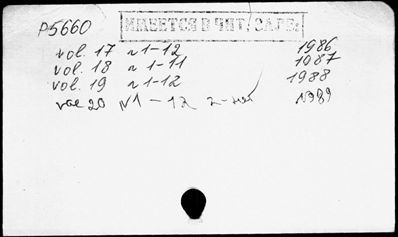 P5660
ИМЕЕТСЯ В ЧИТ/ЗАЛЕ:
vol. 17 n 1-12 1986
vol. 18 n 1-11 1987
vol. 19 n 1-12 1988
vol 20 N1 - 12 1989